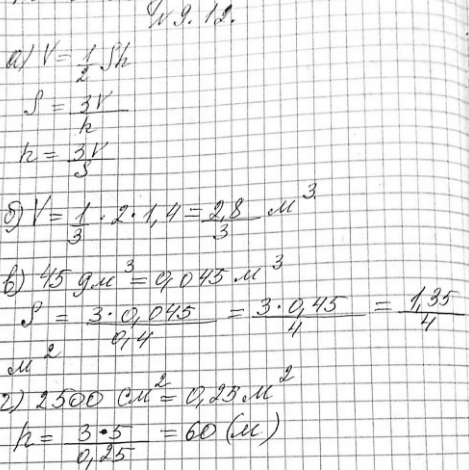 №9.12.
а) V = 1/2 Sh
S = 3V/h
h = 3V/S
б) V = 1/3 · 2 · 1,4 = 2,8/3 м³
в) 45 дм³ = 0,045 м³
S = 3·0,045/0,4 = 3·0,45/4 = 1,35/4
м²
г) 2500 см² = 0,25 м²
h = 3·5/0,25 = 60 (м)